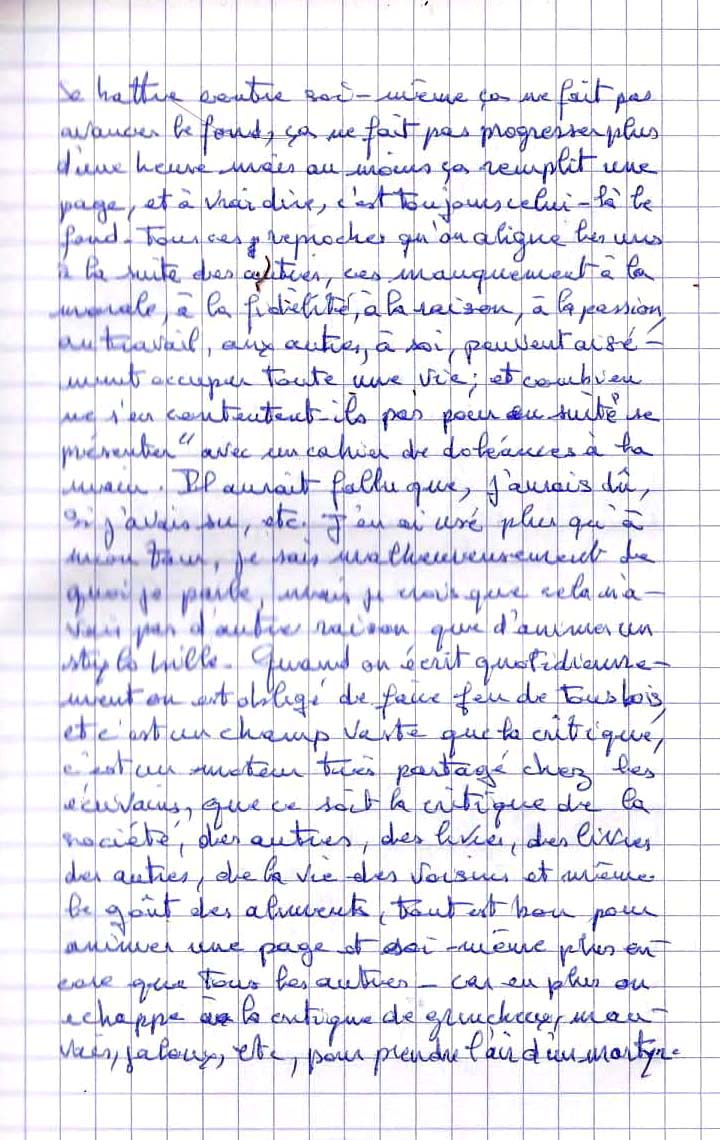 Se battre contre soi-même ça ne fait pas
avancer le fond, ça ne fait pas progresser plus
d'une heure mais au moins ça remplit une
page, et à vrai dire, c'est toujours celui-là le
fond. Tous ces reproches qu'on aligne les uns
à la suite des autres, ces manquement à la
morale, à la fidélité, à la raison, à la passion,
au travail, aux autres, à soi, peuvent aisé-
ment occuper toute une vie; et combien
ne s'en contentent-ils pas pour ensuite se
présenter avec un cahier de doléances à la
main. Il aurait fallu que, j'aurais dû,
si j'avais su, etc. J'en ai usé plus qu'à
mon tour, je sais malheureusement de
quoi je parle, mais je crois que cela n'a-
vait pas d'autre raison que d'animer un
stylo bille. Quand on écrit quotidienne-
ment on est obligé de faire feu de tous bois,
et c'est un champ vaste que la critique,
c'est un moteur très partagé chez les
écrivains, que ce soit la critique de la
société, des autres, des livres, des livres
des autres, de la vie des voisins et même
le goût des aliments, tout est bon pour
animer une page et soi-même plus en-
core que tous les autres - car en plus on
échappe à la critique de grincheux, mau-
vais, jaloux, etc, pour prendre l'air d'un martyr.